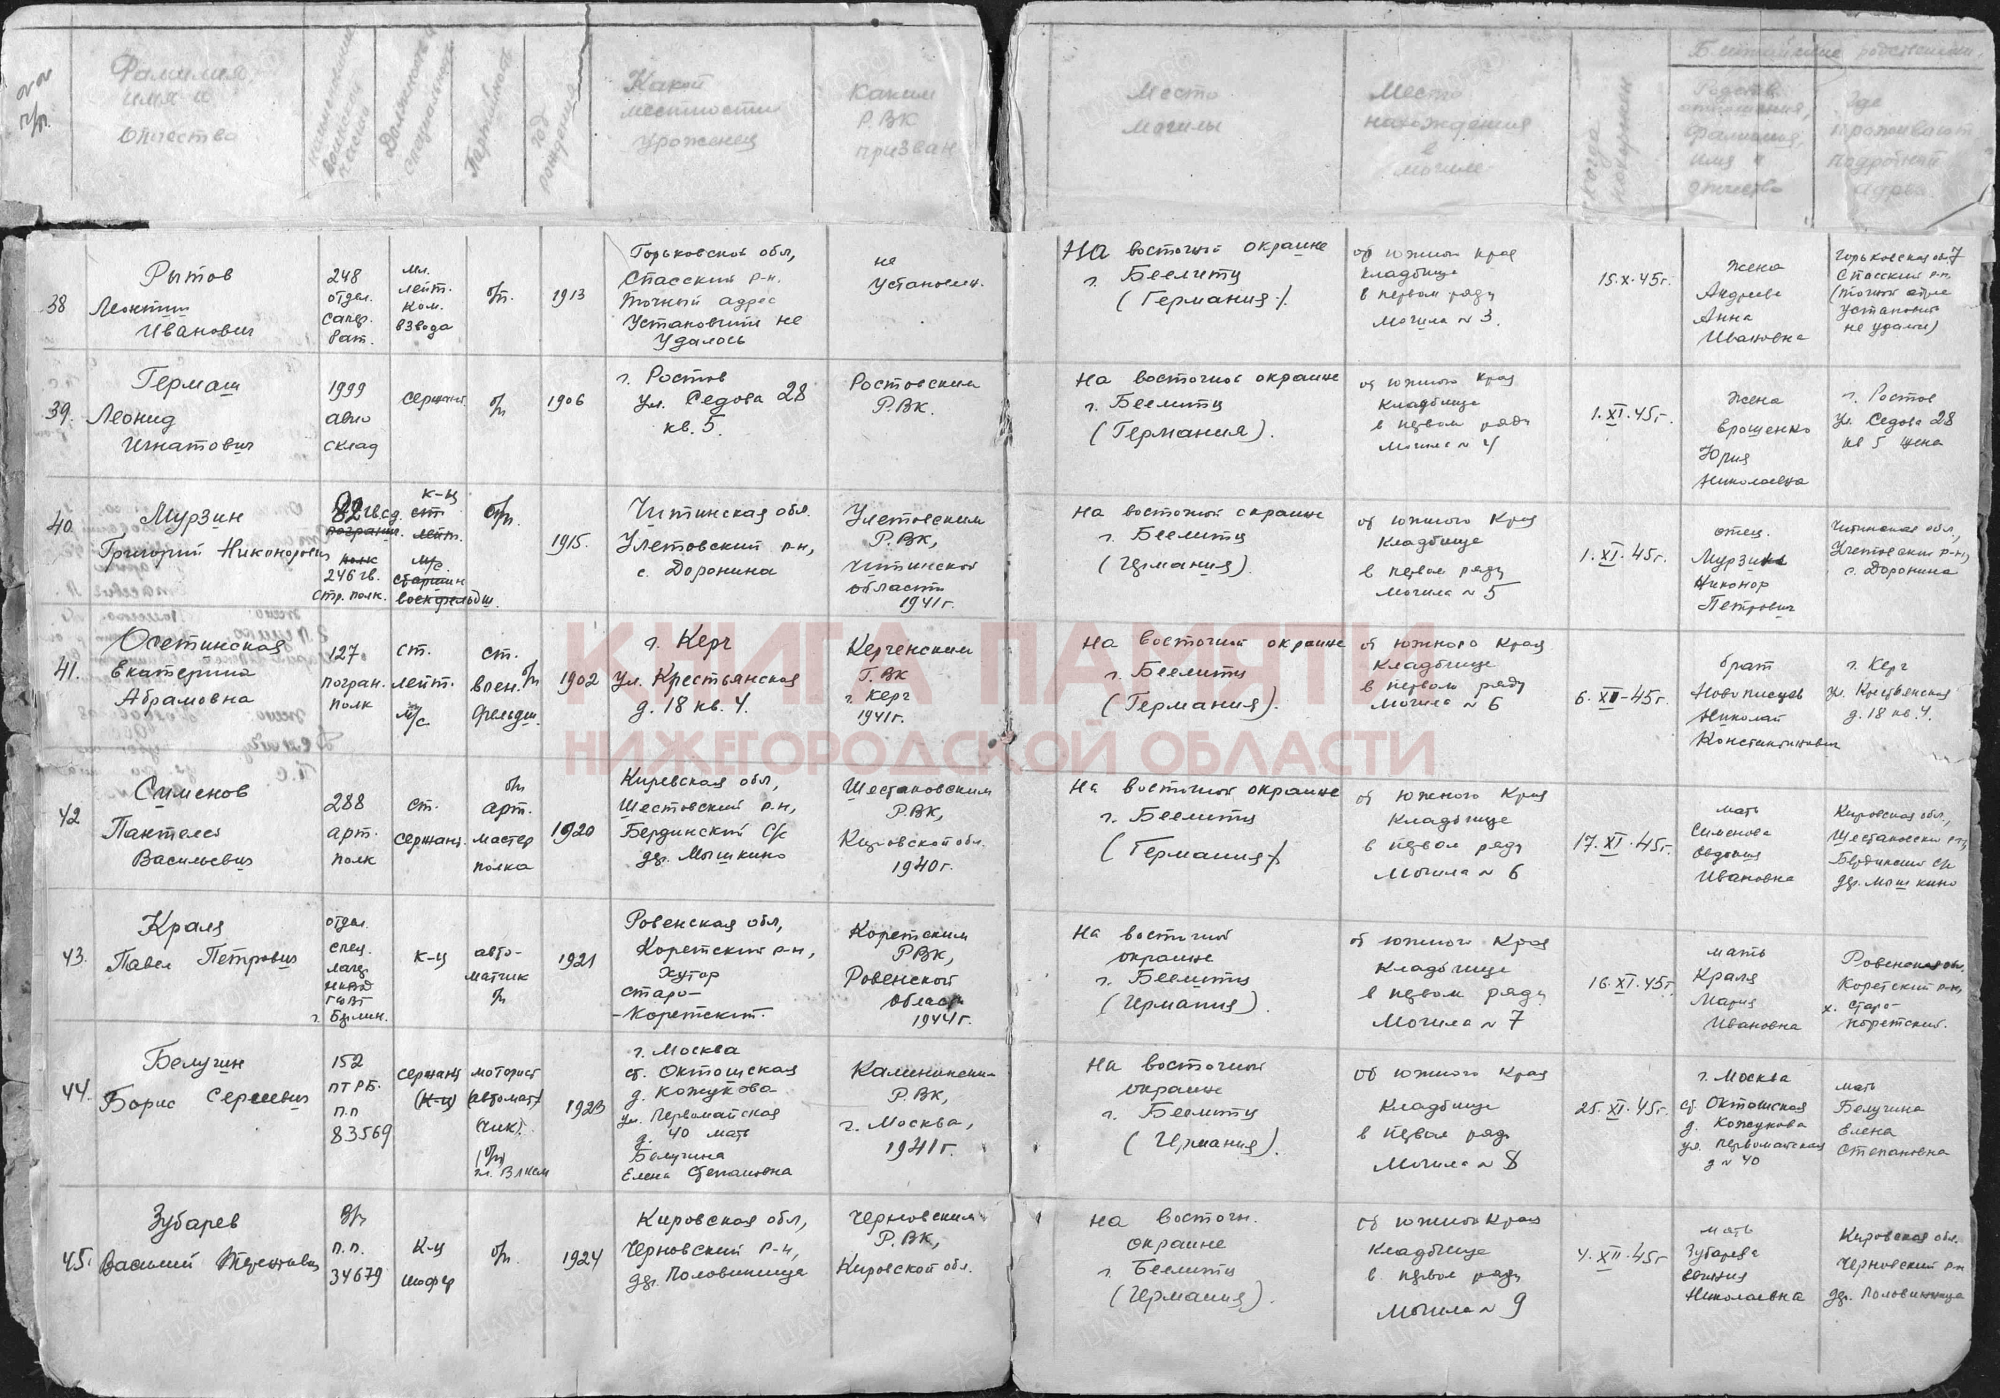 №№ п/п.
Фамилия, имя и отчество
наименование воинской части
Должность и специальность
Партийность
год рождения
Какой местности уроженец
Каким РВК призван
Место могилы
Место нахождения в могиле
когда похоронен
Ближайшие родственники
Родств. отношения, фамилия, имя и отчество
Где проживают подробный адрес
38
Рытов
Леонтий
Иванович
248
отдел.
сапер.
бат.
мл.
лейт.
ком.
взвода
б/п.
1913
Горьковской обл,
Спасский р-н.
точный адрес
Установить не
удалось
не
установлен.
На восточной окраине
г. Беелитц
(Германия)
от южного края
кладбища
в первом ряду
Могила № 3.
15.X.45г.
жена
Андреева
Анна
Ивановна
Горьковская об
Спасский р-н.
(точный адрес
установить
не удалось)
7
39.
Германы
Леонид
Игнатович
1999
авио
склад
сержант.
б/п
1906
г. Ростов
ул. Седова 28
кв. 5.
Ростовским
РВК.
На восточной окраине
г. Беелитц
(Германия).
от южного края
кладбища
в первом ряду
Могила № 4
1.XI.45г.
жена
Ерощенко
Юрия
Николаевна
г. Ростов
ул. Седова 28
кв 5 жена
40.
Мурзин
Григорий Никонорович
82 гв.сд.
погранич.
полк
246 гв.
стр. полк.
к-ц
ст.
лейт.
м/с.
старшин
военфельдш.
б/п.
1915.
Читинская обл.
Улетовский р-н,
с. Доронина
Улетовским
РВК,
Читинской
области
1941г.
На восточной окраине
г. Беелитц
(Германия).
от южного края
кладбище
в первом ряду
Могила № 5
1.XI.45г.
отец.
Мурзин
Никонор
Петрович
Читинская обл,
Улетовский р-н,
с. Доронина
41.
Осетинская
Екатерина
Абрамовна
127
погран.
полк
ст.
лейт.
м/с
ст.
воен. б/п
фельдш.
1902
г. Керч
ул. Крестьянская
д. 18 кв. 4.
Керченским
Г.ВК
г. Керч
1941г.
На восточной окраине
г. Беелитц
(Германия).
от южного края
кладбище
в первом ряду
Могила № 6
6.XII-45г.
брат
Новописцев
Николай
Константинович
г. Керч
ул. Крестьянская
д. 18 кв. 4.
42
Сименов
Пантелей
Васильевич
288
арт.
полк
ст.
сержант.
б/п
арт.
мастер
полка
1920
Кировская обл,
Шестовский р-н,
Бердинский С/с
дер. Мышкино
Шестаковским
РВК,
Кировской обл.
1940г.
На восточной окраине
г. Беелитц
(Германия)
от южного края
кладбище
в первом ряду
Могила № 6
17.XI.45г.
мать
Сименова
Евдокия
Ивановна
Кировская обл.,
Шестаковский р-н
Бердинский с/с
дер. Мышкино
43.
Краля
Павел Петрович
отдел.
спец.
лагер
НКВД
г. Берлин.
к-ц
авто-
матчик
б/п
1921
Ровенская обл,
Коретский р-н,
Хутор
старо-
-Коретский.
Коретским
РВК,
Ровенской
области
1944г.
На восточной
окраине
г. Беелитц
(Германия).
от южного края
кладбище
в первом ряду
Могила № 7
16.XI.45г.
мать
Краля
Мария
Ивановна
Ровенская об.
Коретский р-н,
х. старо-
Коретский.
44.
Белугин
Борис Сергеевич
152
ПТРБ.
п.п
83569
сержант
(к-ц)
моторист
(автомат/
чик).
(б/п)
чл. ВЛКСМ
1923
г. Москва
ст. Октошская
д. Кожухова
ул. Первомайская
д. 40 мать
Белугина
Елена Степановна
Калининским
РВК,
г. Москва,
1941г.
На восточной
окраине
г. Беелитц
(Германия).
от южного края
кладбище
в первом ряду
Могила № 8
25.XI.45г.
г. Москва
ст. Октошская
д. Кожухова
ул. Первомайская
д № 40
мать
Белугина
Елена
Степановна
45.
Зубарев
Василий Терентьевич
в/ч
п.п.
34679
к-ц
шофер
б/п.
1924
Кировская обл,
Черновский р-н,
дер. Половинница
Черновским
РВК,
Кировской обл.
На восточн.
окраине
г. Беелитц
(Германия).
от южного края
кладбище
в первом ряду
Могила № 9
4.XII.45г
мать
Зубарева
Евгения
Николаевна
Кировская обл.
Черновский р-н
дер. Половинница
КНИГА ПАМЯТИ
НИЖЕГОРОДСКОЙ ОБЛАСТИ